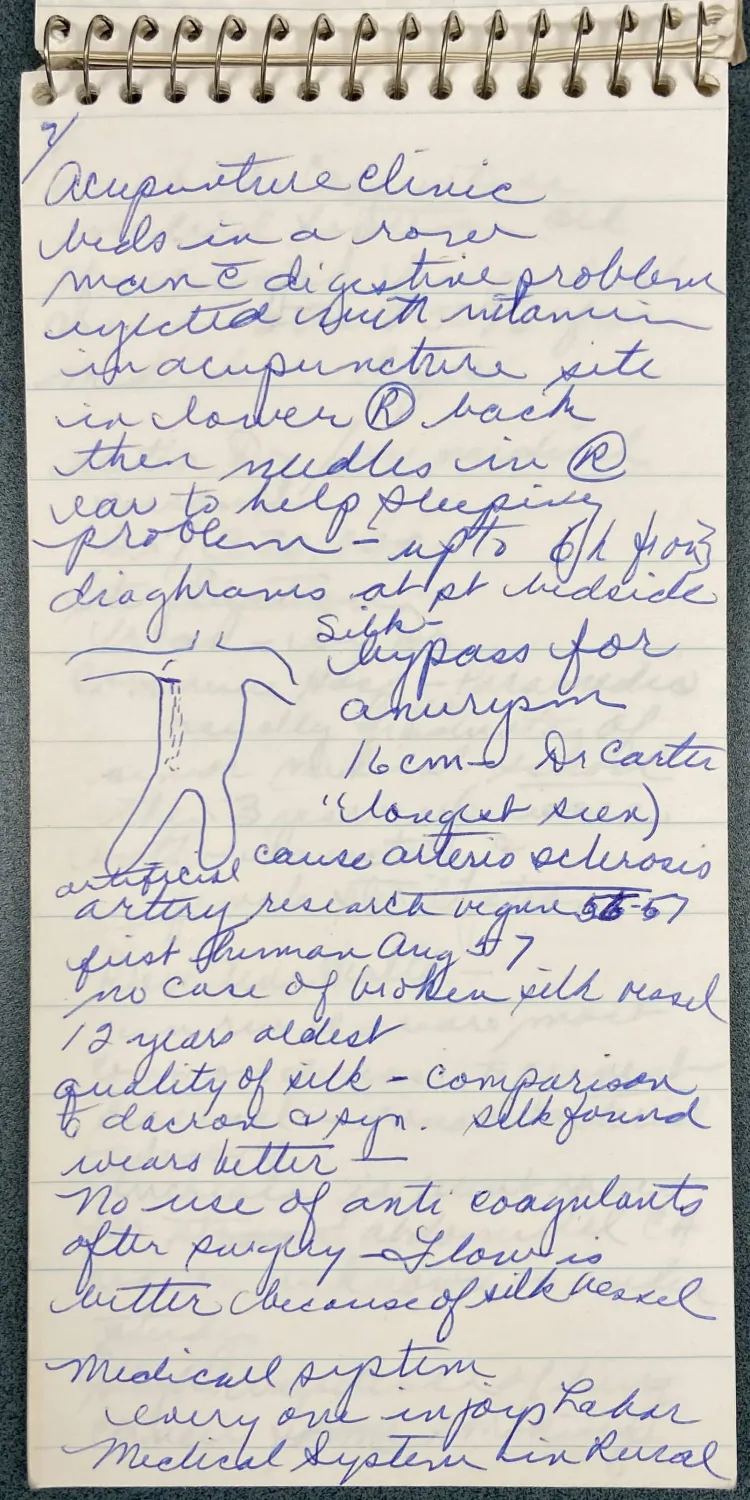 2/
Acupunture clinic
beds in a row
man c̄ digestive problem
injected with vitamin
in acupuncture site
in lower Ⓡ back
then needles in Ⓡ
ear to help sleeping
problem - up to 6h from 3
diaghrams at pt bedside
Silk -
bypass for
anurysm
16 cm - Dr Carter
"(longest seen)
cause arterio sclerosis
artificial
artery research begun 56-57
first human Aug 57
no case of broken silk vessel
12 years oldest
quality of silk - comparison
to dacron & syn. silk found
wears better —
No use of anti coagulants
after surgery - Flow is
better because of silk vessel
Medicall system
every one injoys Labor
Medical System in Rural